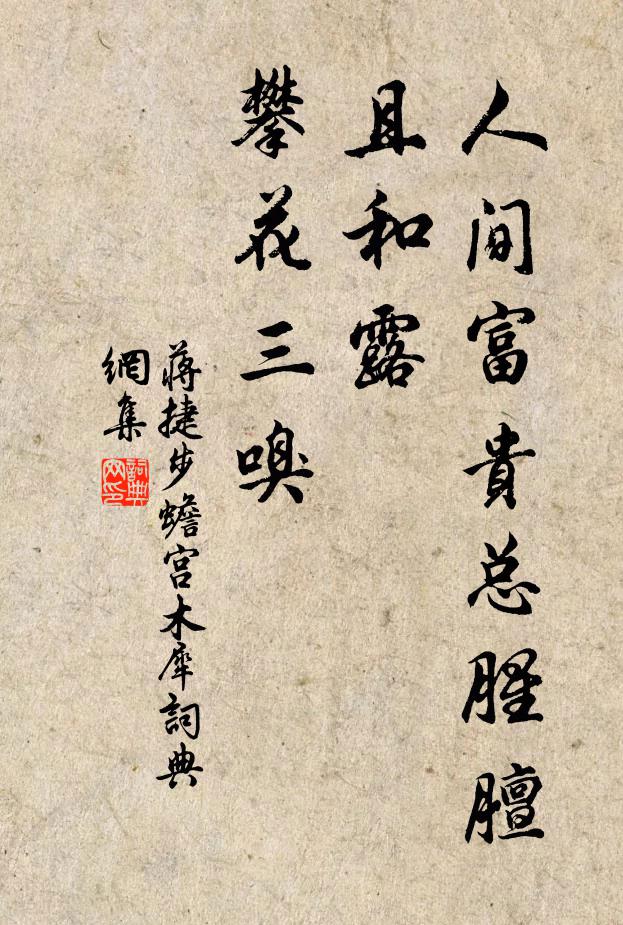 人间富貴总腥膻
且和露
攀花三嗅
蔣捷步蟾宫木犀詞典
網集
詞典
网印